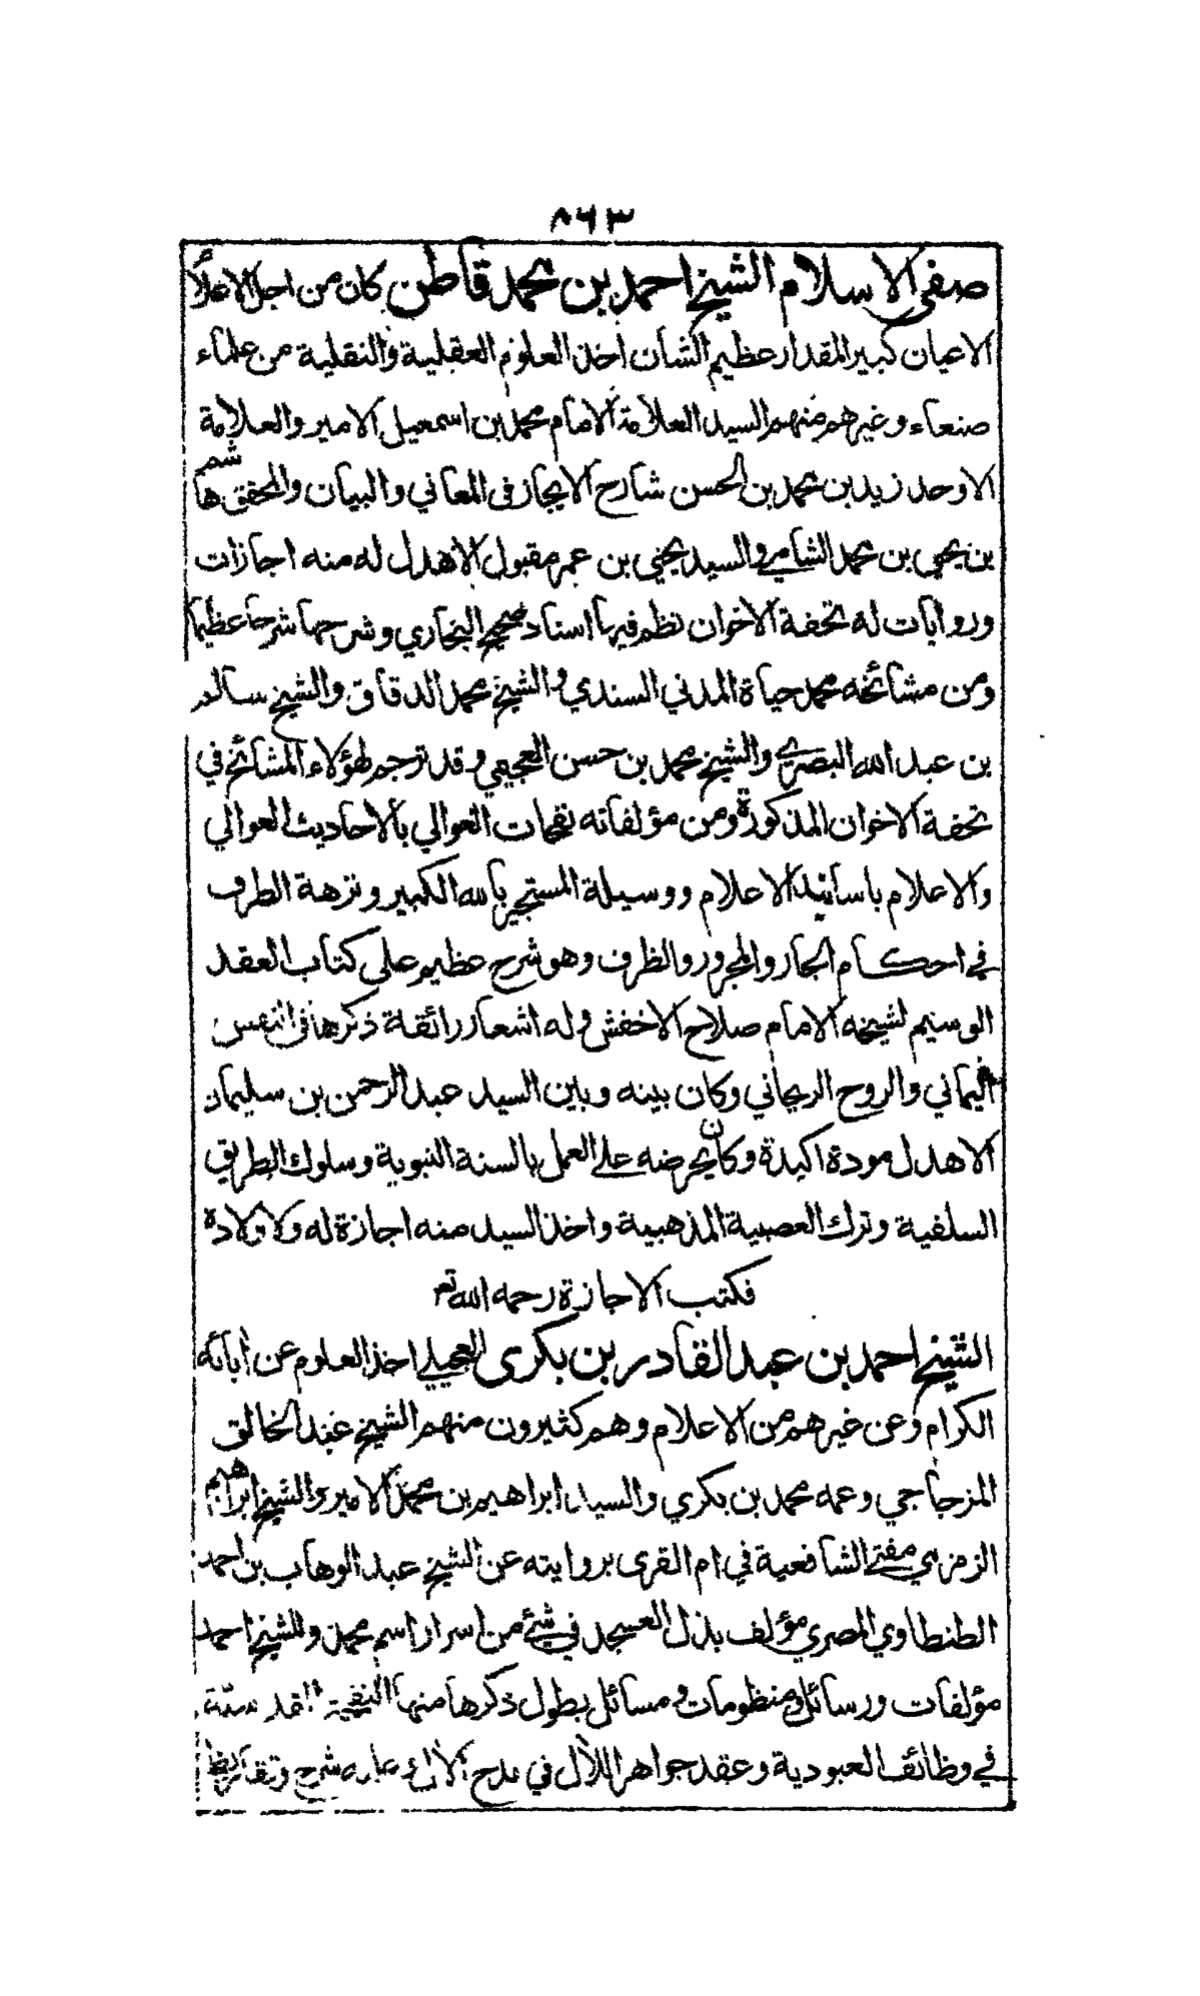 ٨٦٣
صفي الاسلام الشيخ احمد بن محمد قاطن كان من اجل الاعلاء
الاعيان كبير المقدار عظيم الشان اخذ العلوم العقلية والنقلية من علماء
صنعاء وغيرهم منهم السيد العلامة الامام محمد بن اسمعيل الامير والعلامة
الاوحد زيد بن محمد بن الحسن شارح الايجاز في المعاني والبيان والمحقق هاشم
بن يحيى بن محمد الشامي والسيد يحيى بن عمر مقبول الاهدل له منه اجازات
وروايات له تحفة الاخوان نظم فيها اسناد صحيح البخاري وشرحها شرحا عظيما
ومن مشائخه محمد حياة المدني السندي والشيخ محمد الدقاق والشيخ سالم
بن عبد الله البصري والشيخ محمد بن حسن العجيمي وقد ترجم لهؤلاء المشائخ في
تحفة الاخوان المذكورة ومن مؤلفاته نفحات الغوالي بالاحاديث العوالي
والاعلام باسانيد الاعلام ووسيلة المستجير بالله الكبير ونزهة الطرف
في احكام الجار والمجرور والظرف وهو شرح عظيم على كتاب العقد
الوسيم لشيخه الامام صلاح الاخفش وله اشعار رائقة ذكرها في النفس
اليماني والروح الريحاني وكان بينه وبين السيد عبد الرحمن بن سليمان
الاهدل مودة اكيدة وكان يحرضه على العمل بالسنة النبوية وسلوك الطريق
السلفية وترك العصبية المذهبية واخذ السيد منه اجازة له ولاولاده
فكتب الاجازة رحمه الله تع
الشيخ احمد بن عبد القادر بن بكرى العجيلي اخذ العلوم عن آبائه
الكرام وعن غيرهم من الاعلام وهم كثيرون منهم الشيخ عبد الخالق
المزجاجي وعمه محمد بن بكري والسيد ابراهيم بن محمد الامير والشيخ ابراهيم
الزمزمي مفتي الشافعية في ام القرى بروايته عن الشيخ عبد الوهاب بن احمد
الطنطاوي المصري مؤلف بذل العسجد في شئ من اسرار اسم محمد وللشيخ احمد
مؤلفات ورسائل ومنظومات ومسائل يطول ذكرها منها
في وظائف العبودية وعقد جواهر اللآل في مدح الآل شرح